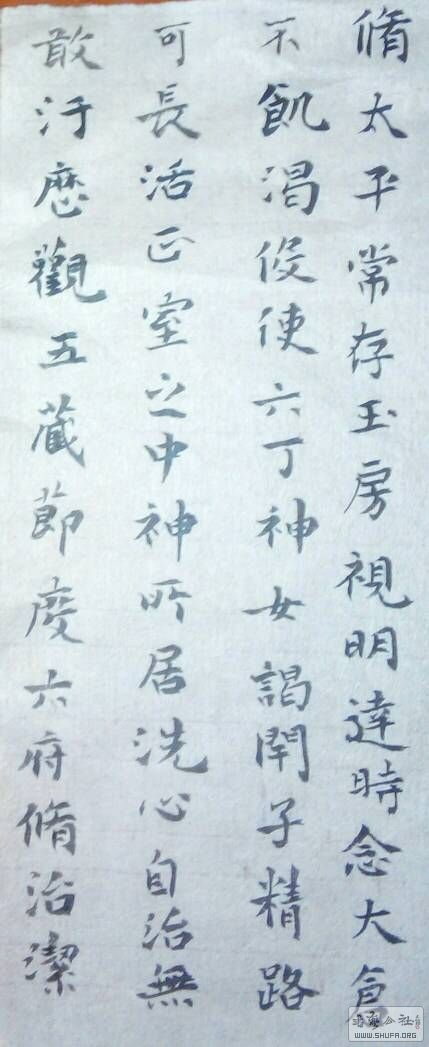 脩太平常存玉房視明達時念大倉
不飢渴役使六丁神女謁閇子精路
可長活正室之中神所居洗心自治無
敢汙歷觀五藏節度六府脩治潔
WWW.SHUFA.ORG